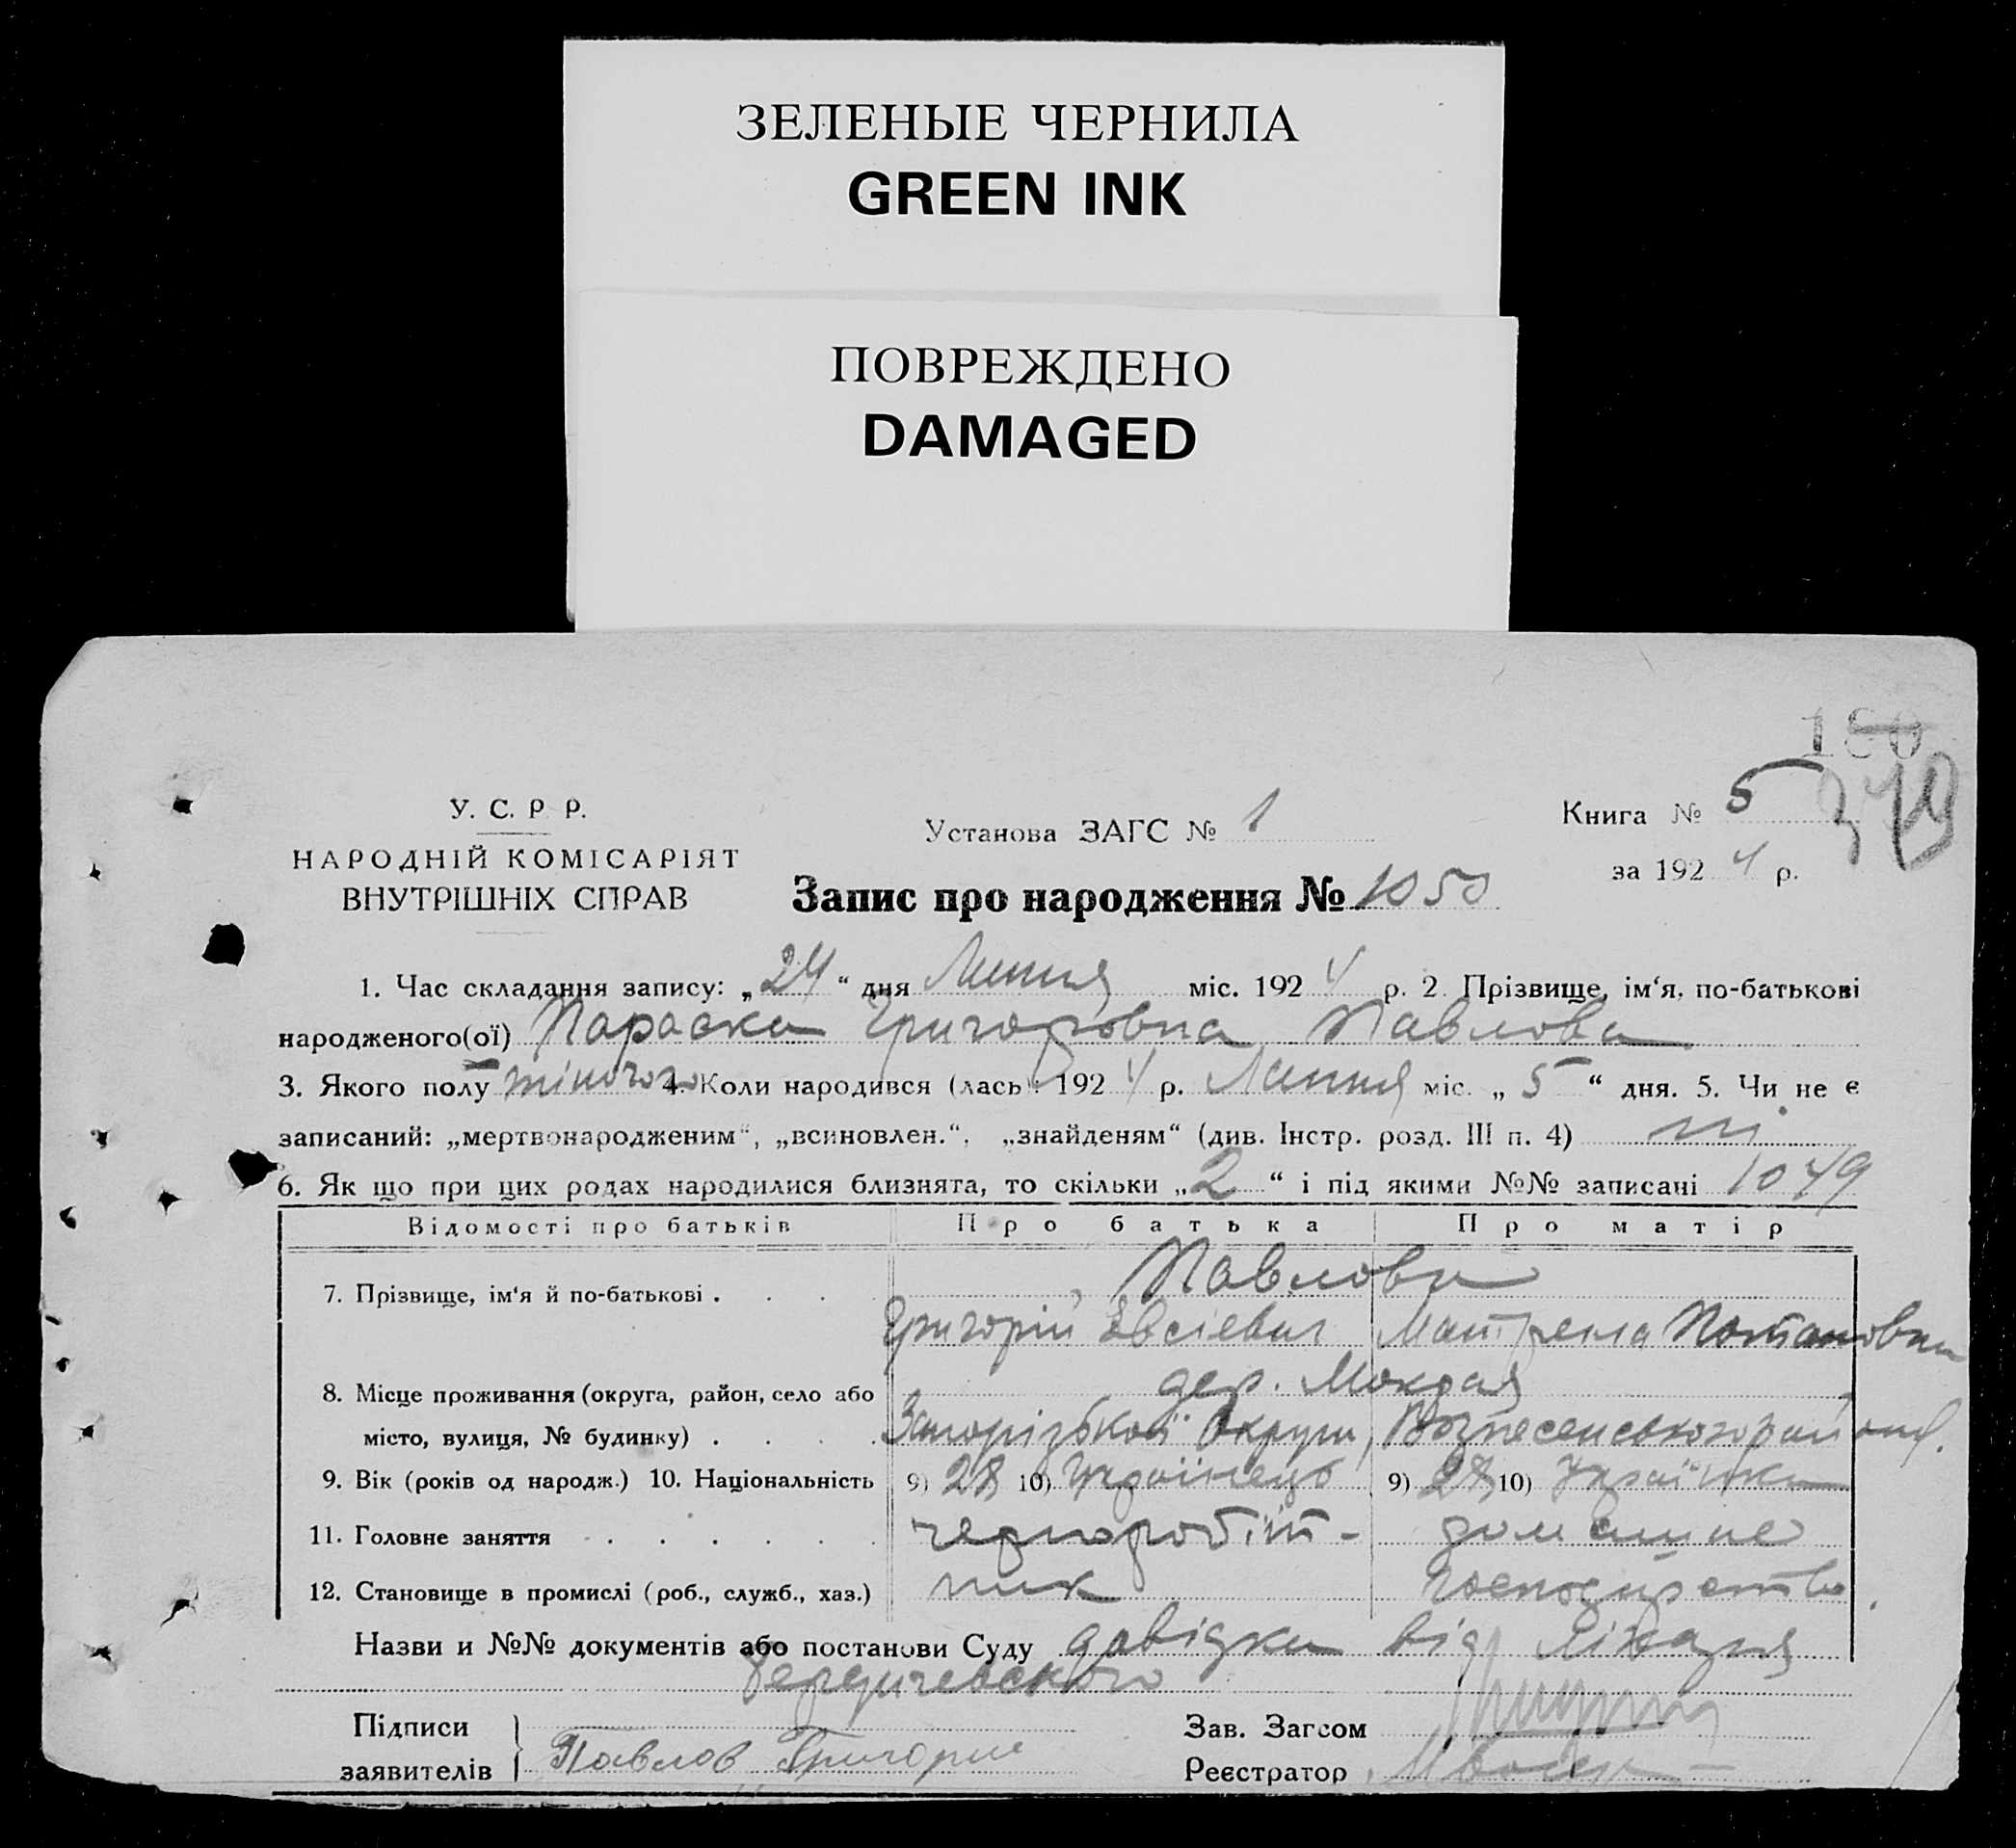 ЗЕЛЕНЫЕ ЧЕРНИЛА
GREEN INK
ПОВРЕЖДЕНО
DAMAGED
180
У. С. Р Р.
Установа ЗАГС № 1
Книга № 5
НАРОДНІЙ КОМІСАРІЯТ
за 1924 р.
ВНУТРІШНІХ СПРАВ
Запис про народження № 1050
1. Час складання запису: „24“ дня Липня міс. 1924 р. 2. Прізвище, ім‘я, по-батькові
народженого(ої) Параска Григорівна Павлова
3. Якого полу жіночого 4. Коли народився (лась) 1924 р. Липня міс. „5“ дня. 5. Чи не є
записаний: „мертвонародженим“, „всиновлен.“, „знайденям“ (див. Інстр. розд. III п. 4) ні
6. Як що при цих родах народилися близнята, то скільки „2“ і під якими №№ записані 1049
Відомості про батьків Про батька Про матір
7. Прізвище, ім‘я й по-батькові . Павлови
Григорій Евсієвич Матрена Потаповна
8. Місце проживання (округа, район, село або дер. Мокрая
місто, вулиця, № будинку) . Запорізької Округи, Вознесенського району.
9. Вік (років од народж.) 10. Національність 9) 28 10) Українець 9) 28 10) Українка
11. Головне заняття чорноробіт- домашнє
12. Становище в промислі (роб., служб., хаз.) ник господарство.
Назви и №№ документів або постанови Суду довідка від лікаря
Підписи
Зав. Загсом
заявителів Павлов Григорий
Реєстратор